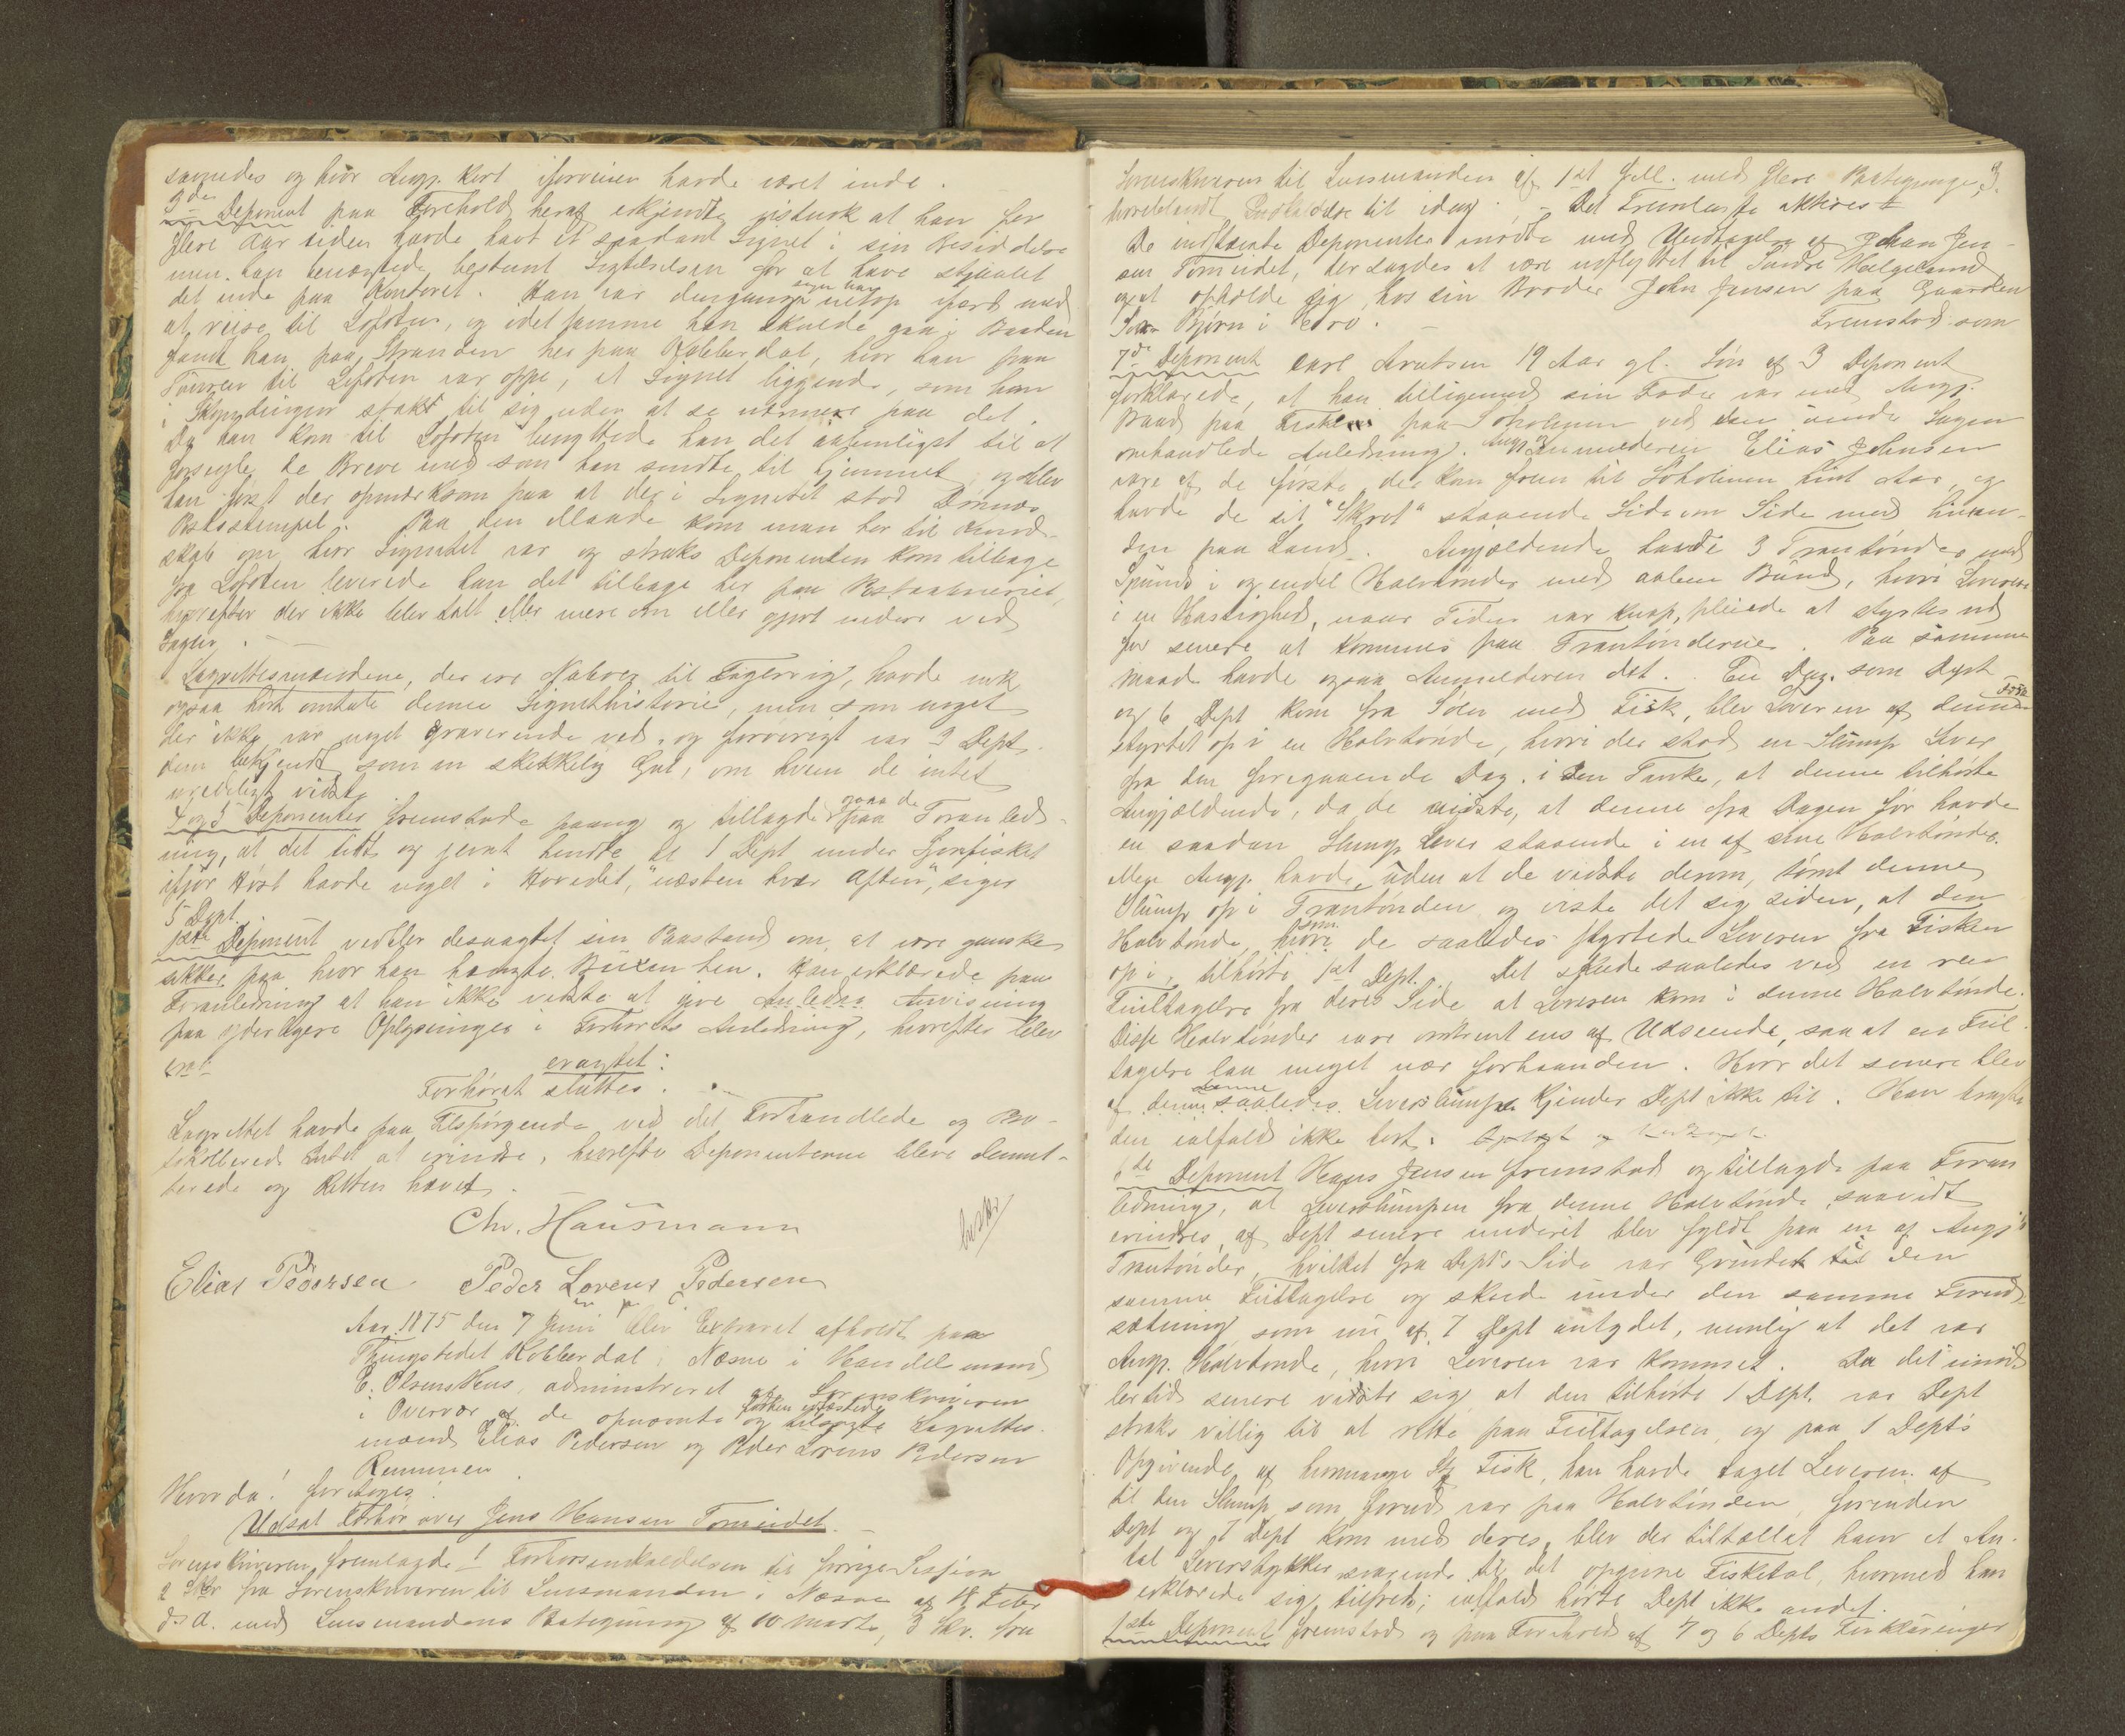 samedes og hvor Angj. kort iforveien havde været inde.
3de Deponent paa Forehold heraf erkjendte jistnok at han for
flere Aar siden havde havt et saadant Signet i sin Besiddelse
men han benægtede bestemt Sigtelsen for at have stjaalet
det inde paa Kontoret. Han var dengang siger han netop ifærd med
at reise til Lofoten, og idet samme han skulde gaa i Baaden
fandt han paa Stranden her paa Kobberdal, hvor han paa
Touren til Lofoten var oppe, et Signet liggende, som han
i Skyndingen stak til sig uden at se nærmere paa det.
Da han kom til Lofoten benyttede han det aabenligst til at
forsegle de Breve med som han sendte til Hjemmet, og blev
han først der opmærksom paa at der i Signetet stod Dønnes
Poststempel. Paa den Maade kom man her til Kund-
skab om hvor Signetet var og straks Deponenten kom tilbage
fra Lofoten leverede han det tilbage her paa Postaabneriet,
hvorefter der ikke blev talt eller mere om eller gjort videre ved
Sagen.
Lagrettesmændene, der ere Naboer til Fagervig, havde nok
ogsaa hørt omtale denne Signethistorie, men som noget
der ikke var noget Graverende ved, og forøvrigt var 3 Dept.
dem bekjendt som en skikkelig Gut, om hvem de intet
uredeligt vidste.
4 og 5 Deponenter fremstode paany og tillagde ogsaa de paa Foranled-
ning, at det tidt og jevnt hendte at 1 Dept under Hjemfisket
ifjor Høst havde noget i Hovedet, "næsten hver Aften", siger
5 Dept.
1ste Deponent vedblev desuagtet sin Paastand om at være ganske
sikker paa hvor han hængte Buxen hen. Han erklærede paa
Foranledning at han ikke vidste at give Anledn. Anvisning
paa yderligere Oplysninger i Forhørets Anledning, hvorefter blev
eragtet:
Forhøret sluttes.
Lagrettet havde paa Tilspørgende ved det Forhandlede og Pro-
tokollerede Intet at erindre, hvorefter Deponenterne bleve demit-
terede og Retten hævet.
Chr. Hausmann
Elias Pedersen Peder Lorens Pedersen
Aar 1875 den 7 Juni blev Extraret afholdt paa
Thingstedet Kobberdal i Næsne i Handelsmand
E. Olsens Hus, administreret af Sorenskriveren
i Overvær af de opnævnte og tilsagte Lagrettes-
mænd Elias Pedersen og Peder Lorens Pedersen
Remmen
Hvorda! foretoges:
Udsat Forhør over Jens Hansen Tomeidet.
Sorenskriveren fremlagde 1 Forhørsindkaldelsen til forrige Session
2 Skr fra Sorenskriveren til Lensmanden i Næsne af 18 Febr
d. A. med Lensmandens Paategning af 10 Marts, 3 Skr. fra
Sorenskriveren til Lensmanden af 1st April med flere Paategninger,
hvoriblandt Indkaldelse til idag. - Det Fremlagte akteres
De indstævnte Deponenter mødte med Undtagelse af Johan Jen-
sen Tomeidet, der sagdes at være udflyttet til Søndre Helgeland
og at opholde sig hos sin Broder John Jensen paa Gaarden
Bjørn i
Fremstod som
7de Deponent Carl Arntsen 19 Aar gl. Søn af 3 Deponent
forklarede, at han tilligemed sin Fader var med Angj.
Baad paa Fisket paa Soholmen ved den under Sagen
omhandlede Anledning. Angj. Anmelderen Elias Johnsen
vare af de første der kom frem til Soholmen hint Aar, og
havde de sit "Skrot" staaende Side om Side med hinan-
den paa Land. Angjældende havde 3 Trantønder med
Spunds i og endel Halvtønder med aaben Bund, hvori Leveren
i en Hastighed, naar Tiden var knap, pleiede at styrtes ned
for senere at kommes paa Trantønderne. Paa samme
Maade havde ogsaa Anmelderen det. En Dag som Dept
og 6 Dept kom fra Søen med Fisk, blev Leveren af denne
styrtet op i en Halvtønde, hvori der stod en Slump Lever
fra den foregaaende Dag, i den Tanke, at denne tilhørte
Angjældende, da de vidste, at denne fra Dagen før havde
en saadan Slump Lever staaende i en af sine Halvtønder.
Men Angj. havde, uden at de vidste derom, tømt denne
Slump op i Trantønden og viste det sig siden, at den
Halvtønde, som de saaledes styrtede Leveren fra Fisken
op i, tilhørte 1st Dept. Det skede saaledes ved en ren
Feiltagelse fra deres Side at Leveren kom i denne Halvtønde.
Disse Halvtønder vare omtrent ens af Udseende, saa at en Feil-
tagelse laa meget nær forhaanden. Hvor det senere blev
af denne Leverslump kjender Dept ikke til. Han bragte
den ialfald ikke bort.
6te Deponent Hans Jensen fremstod og tillagde paa Foran
ledning, at Leverslumpen fra denne Halvtønde, saavidt
erindres af Dept senere underet blev fyldt paa en af Angj's
Trantønder, hvilket fra Dept's Side var Grundet til den
samme Feiltagelse og skede under den samme Forud-
sætning som nu af 7 Dept antydet, nemlig at det var
Angj. Halvtønde, hvori Leveren var kommet. Da det imid-
lertid senere vidste sig at den tilhørte 1 Dept. var Dept
straks villig til at rette paa Feiltagelsen, og paa 1 Dept's
Opgivende af hvormange Stk Fisk, han havde taget Leveren af
til den Slump, som forud var paa Halvtønden, forinden
Dept og 7 Dept kom med deres, blev der tiltællet ham et An-
tal Leverstykker svarende til det opgivne Fisketal, hvormed han
erklærede sig tilfreds; ialfald hørte Dept ikke andet.
1ste Deponent fremstod og paa Forehold af 7 og 6 Depts Forklaringer